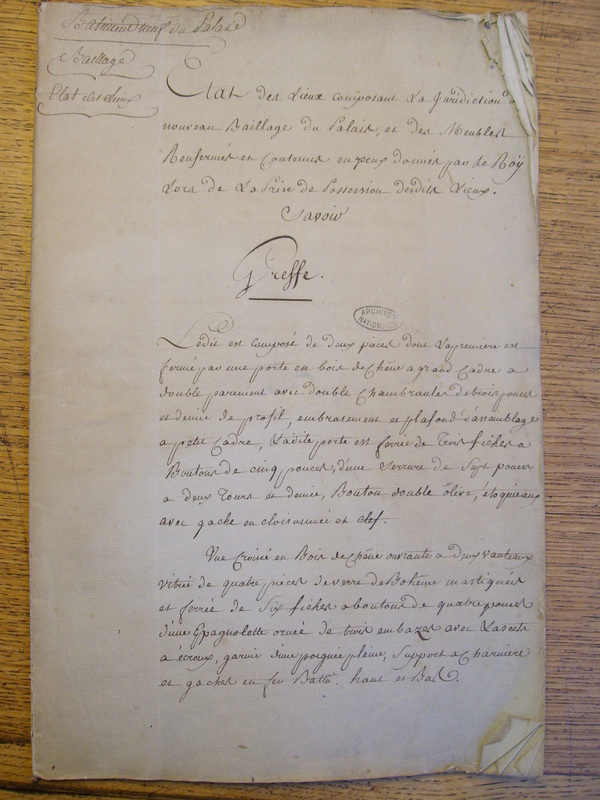 Batiment neuf du Palais
Baillage
Etat des Lieux
Etat des Lieux composant La Juridiction
nouveau Baillage du Palais, et des Meubles
Renfermés et Contenus en yeux donnés par Le Roy
Lors de La Prise de Possession desdits Lieux.
Savoir
Greffe.
ARCHIVES
NATIONALES
Ledit est composé de deux pieces dont La premiere est
fermé par une porte en bois de Chêne a grand Cadre a
double parement avec double Chambranles de trois pouces
et demie de profil, embrasement et plafond d'assemblage
a petit Cadre, Ladite porte est ferrée de Trois fiches a
Boutons de cinq pouces, d'une Serrure de Sept pouces
a deux Tours et demie, Bouton double olive,
avec gache en cloisonnée et clef.
Une Croisée en Bois de Chêne ouvrante a deux vanteaux
vitrée de quatre pieces de verre de Bohême mastiquées
et ferrée de Six fiches a boutons de quatre pouces
d'une Epagnolette ornée de trois embazes avec Lacets
a écroux, garnie d'une poignée pleine, Support a Charniere
et gaches en fer Battu haut et Bas.